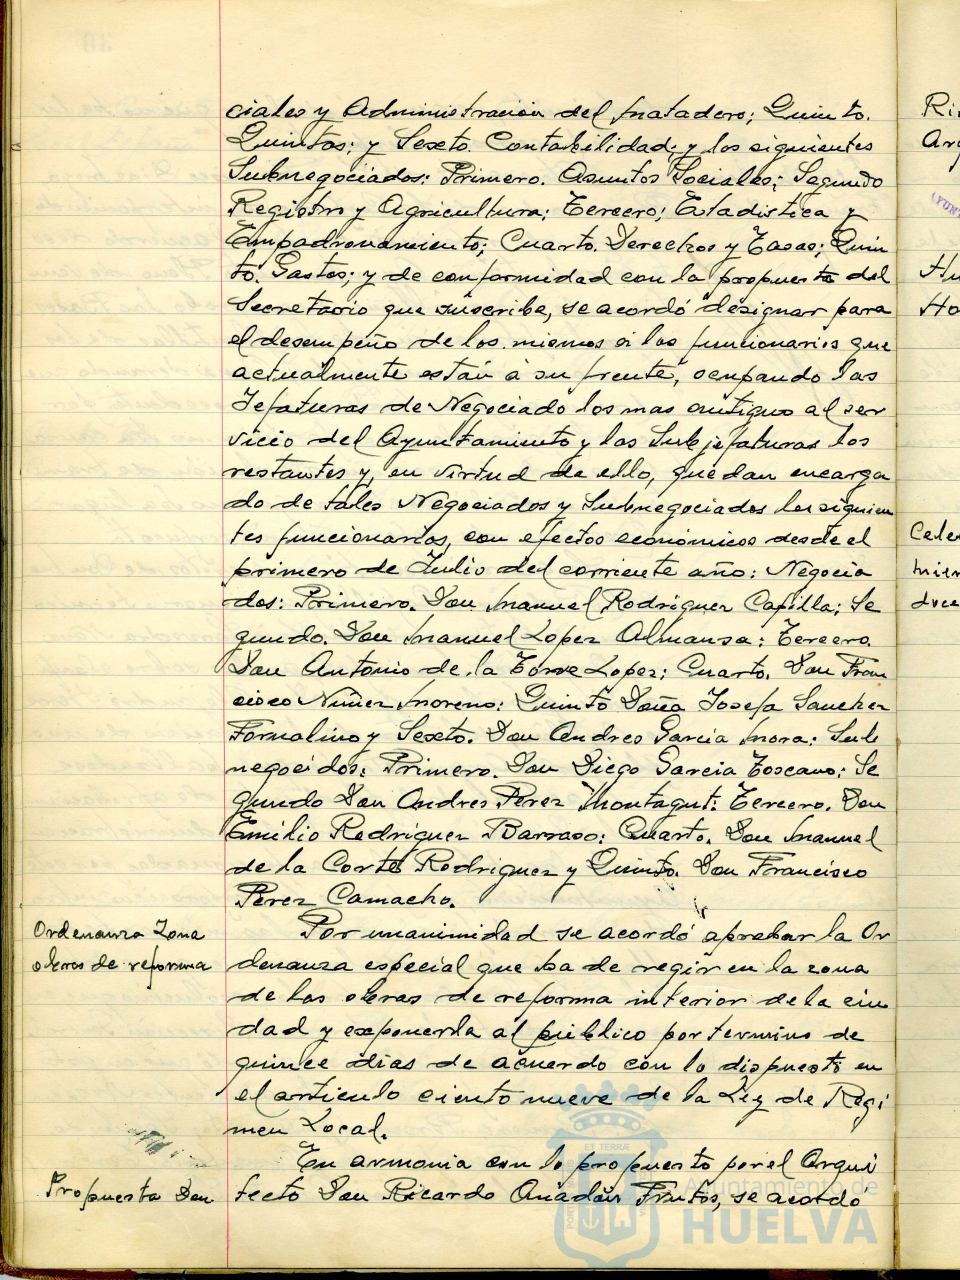 ciales y Administración del Matadero; Quinto.
Quintas; y Sexto. Contabilidad; y los siguientes
Subnegociados: Primero. Asuntos Sociales; Segundo
Registro y Agricultura; Tercero; Estadistica y
Empadronamiento; Cuarto. Derechos y Tasas; Quin
to. Gastos; y de conformidad con la propuesta del
Secretario que suscribe, se acordó designar para
el desempeño de los mismos a los funcionarios que
actualmente están á su frente, ocupando las
Jefaturas de Negociado los mas antiguos al ser
vicio del Ayuntamiento y las Subjefaturas los
restantes y, en virtud de ello, quedan encarga
do de tales Negociados y Subnegociados los siguien
tes funcionarios, con efectos económicos desde el
primero de Julio del corriente año: Negocia
dos: Primero. Don Manuel Rodriguez Capilla; Se
gundo. Don Manuel Lopez Almansa; Tercero.
Don Antonio de la Torre Lopez; Cuarto. Don Fran
cisco Nuñez Moreno; Quinto Doña Josefa Sanchez
Fornalino y Sexto. Don Andres García Mora; Sub
negocidos: Primero. Don Diego Garcia Toscano; Se
gundo Don Andres Perez Montagut; Tercero. Don
Emilio Rodríguez Barraso; Cuarto. Don Manuel
de la Corte Rodriguez y Quinto. Don Francisco
Perez Camacho.
Ordenanza Zona
obras de reforma
Por unanimidad se acordó aprobar la Or
denanza especial que ha de regir en la zona
de las obras de reforma interior de la ciu
dad y exponerla al público por termino de
quince dias de acuerdo con lo dispuesto en
el articulo ciento nueve de la Ley de Regi
men Local.
En armonia con lo propuesto por el Arqui
Propuesta Don
tecto Don Ricardo Anadón Frutos, se acordó
Ayuntamiento de
HUELVA